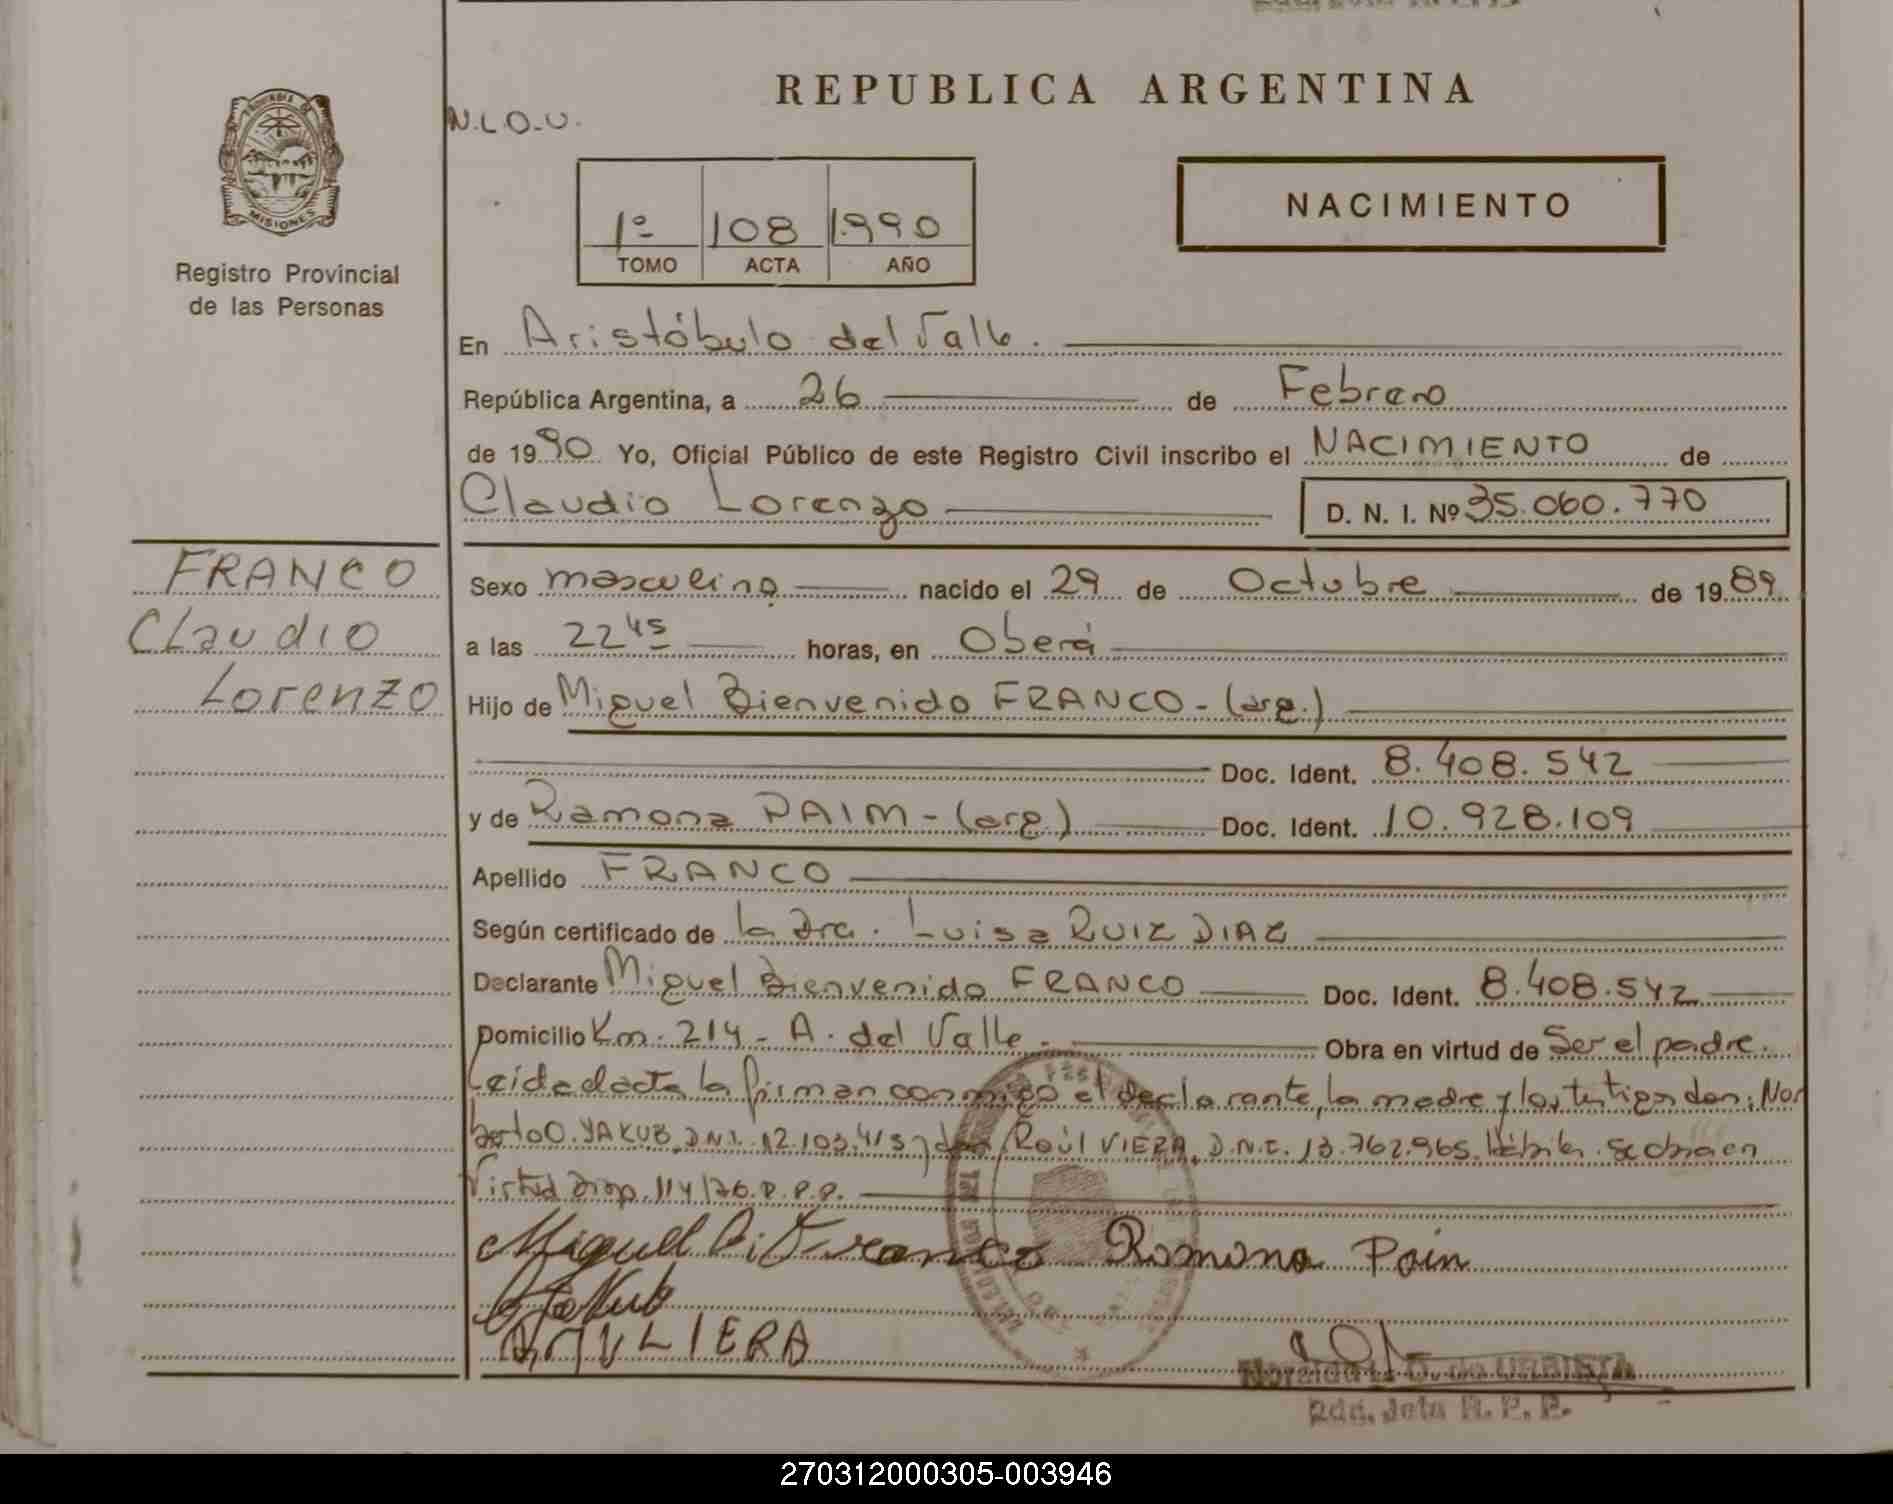 REPUBLICA ARGENTINA
N.L.O.U.
PROVINCIA DE
MISIONES
Registro Provincial
de las Personas
NACIMIENTO
1º 108 1990
TOMO ACTA AÑO
En Aristóbulo del Valle.
República Argentina, a 26 de Febrero
de 1990 Yo, Oficial Público de este Registro Civil inscribo el NACIMIENTO de
Claudio Lorenzo D. N. I. Nº 35.060.770
FRANCO
Claudio
Lorenzo
Sexo masculino nacido el 29 de Octubre de 1989
a las 22 45 horas, en Oberá
Hijo de Miguel Bienvenido FRANCO - (arg.)
Doc. Ident. 8.408.542
y de Ramona PAIM - (arg.) Doc. Ident. 10.928.109
Apellido FRANCO
Según certificado de la Dra. Luisa RUIZ DIAZ
Declarante Miguel Bienvenido FRANCO Doc. Ident. 8.408.542
Domicilio Km. 214 - A. del Valle. Obra en virtud de Ser el padre.
Leida el acta la firman conmigo el declarante, la madre y los testigos don: Nor
berto O. YAKUB, D.N.I. 12.103.415 y don Raúl VIERA, D.N.I. 13.762.965. Se obra en
Virtud Disp. 114/76. R.P.P.
Miguel B. Franco Ramona Pain
Yakub
VIERA
R. P. P.
270312000305-003946